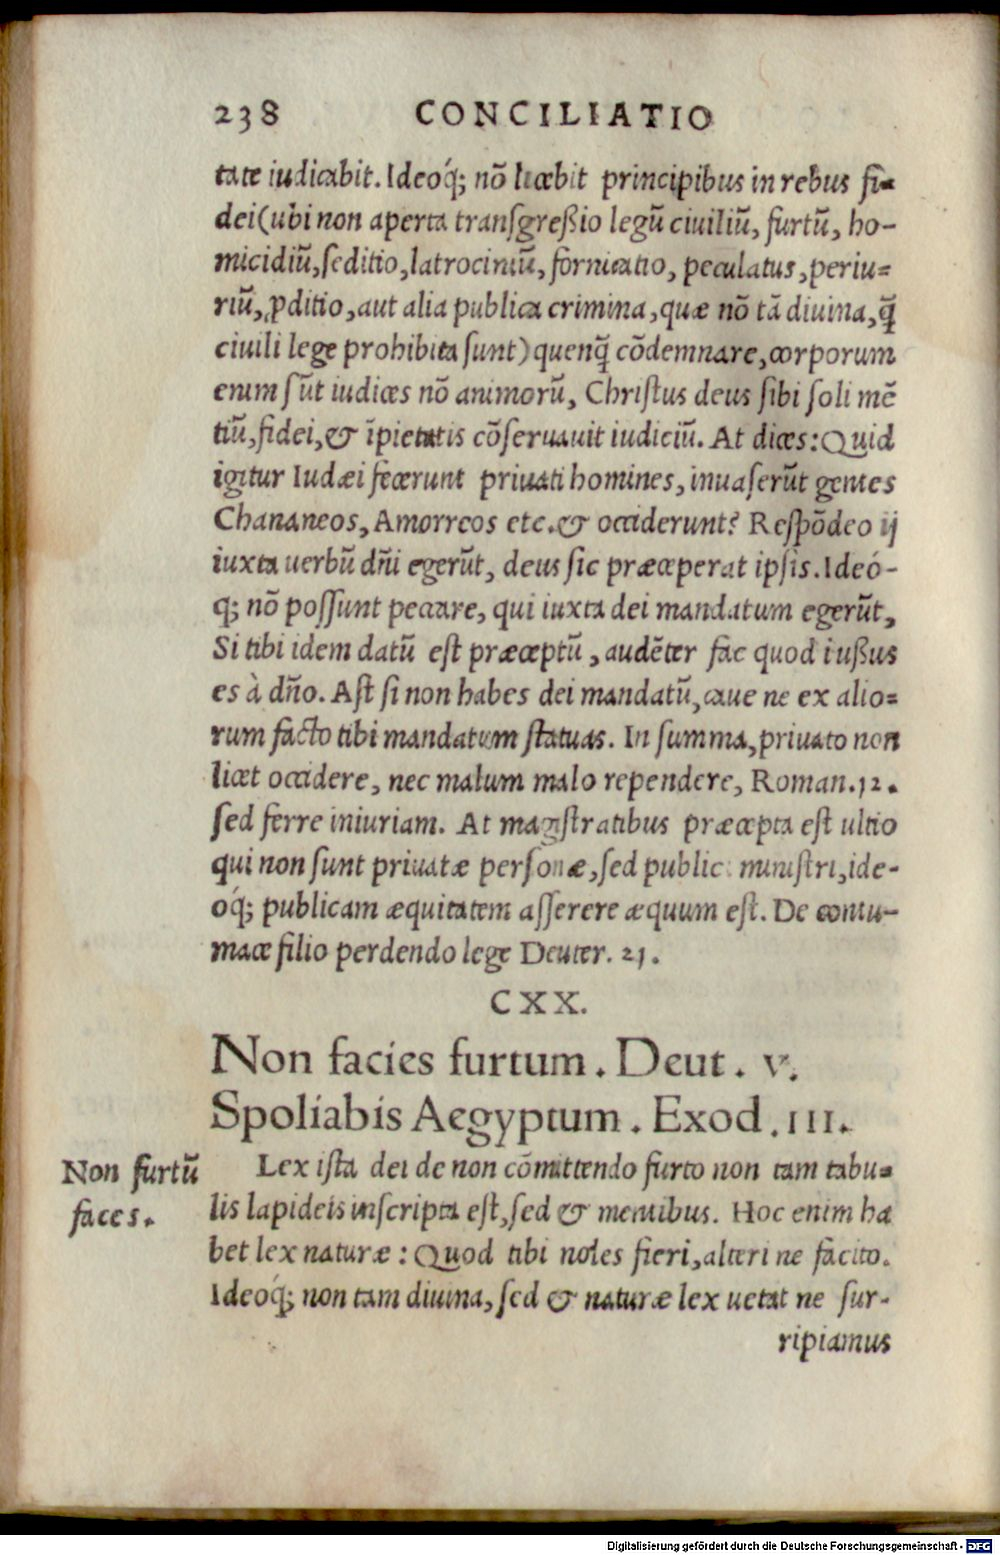 238 CONCILIATIO
tate iudicabit. Ideoq́; nõ licebit principibus in rebus fi-
dei (ubi non aperta transgreßio legũ ciuiliũ, furtũ, ho-
micidiũ, seditio, latrociniũ, fornicatio, peculatus, periu-
riũ, ꝓditio, aut alia publica crimina, quæ nõ tã diuina, q̃
ciuili lege prohibita sunt) quenq̃ cõdemnare, corporum
enim sũt iudices nõ animorũ, Christus deus sibi soli mẽ
tiũ, fidei, & ĩpietatis cõseruauit iudiciũ. At dices: Quid
igitur Iudæi fecerunt priuati homines, inuaserũt gentes
Chananeos, Amorreos etc. & occiderunt? Respõdeo ij
iuxta uerbũ dñi egerũt, deus sic præceperat ipsis. Ideó-
q; nõ possunt peccare, qui iuxta dei mandatum egerũt,
Si tibi idem datũ est præceptũ, audẽter fac quod iußus
es à dño. Ast si non habes dei mandatũ, caue ne ex alio-
rum facto tibi mandatum statuas. In summa, priuato non
licet occidere, nec malum malo rependere, Roman. 12.
sed ferre iniuriam. At magistratibus præcepta est ultio
qui non sunt priuatæ personæ, sed public ministri, ide-
oq́; publicam æquitatem asserere æquum est. De contu-
mace filio perdendo lege Deuter. 21.
CXX.
Non facies furtum. Deut. v.
Spoliabis Aegyptum. Exod. III.
Non furtũ
faces.
Lex ista dei de non cõmittendo furto non tam tabu-
lis lapideis inscripta est, sed & mentibus. Hoc enim ha
bet lex naturæ: Quod tibi noles fieri, alteri ne facito.
Ideoq́; non tam diuina, sed & naturæ lex uetat ne sur-
ripiamus
Digitalisierung gefördert durch die Deutsche Forschungsgemeinschaft - DFG